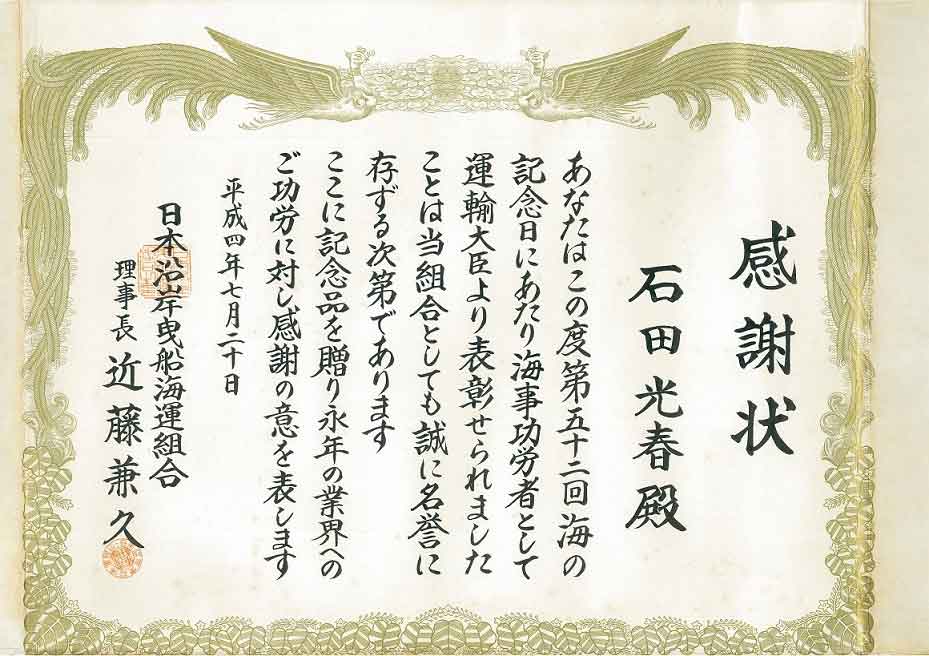 感謝状
石田光春殿
あなたはこの度第五十二回海の
記念日にあたり海事功労者として
運輸大臣より表彰せられました
ことは当組合としても誠に名誉に
存ずる次第であります
ここに記念品を贈り永年の業界への
ご功労に対し感謝の意を表します
平成四年七月二十日
日本沿岸曳船海運組合
理事長 近藤兼久